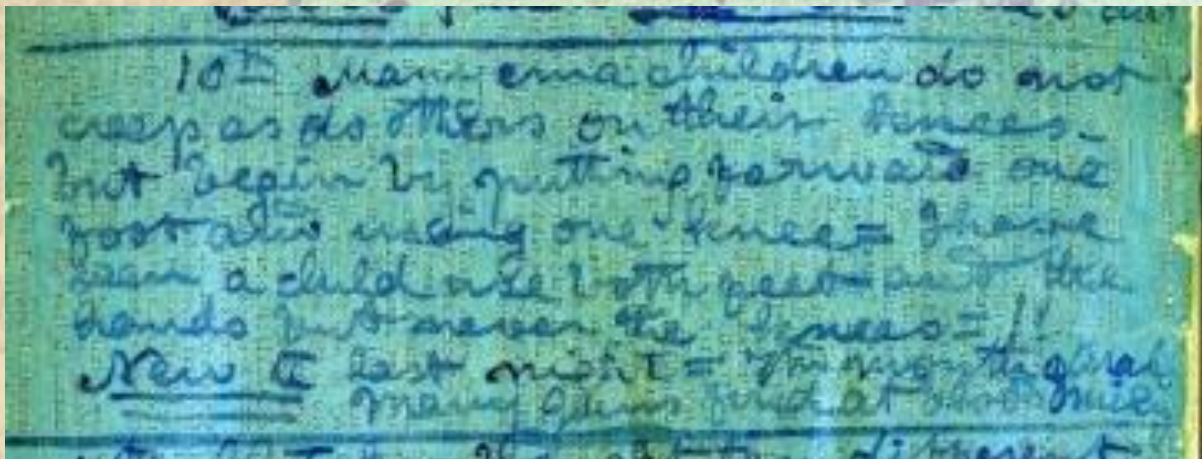 10th Manyema children do not
creep as do others on their knees -
but begin by putting forward one
foot and using one knee = I have
seen a child use both feet and the
hands but never the knees =
New ☾ last night = I'm months
many guns fired at
different